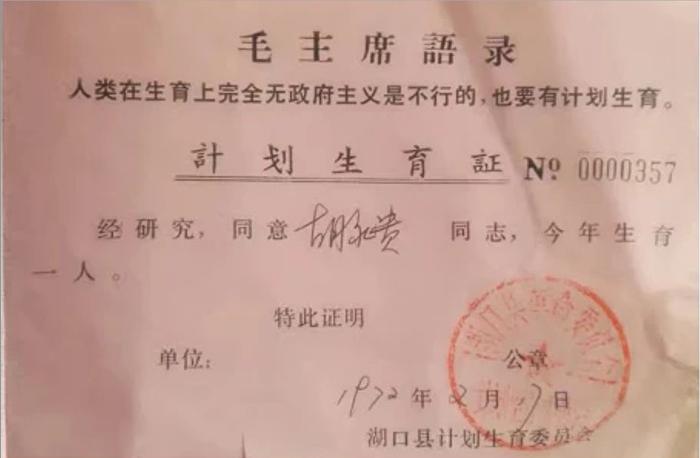 毛主席語录
人类在生育上完全无政府主义是不行的，也要有计划生育。
計划生育証 № 0000357
经研究，同意胡永贵同志，今年生育
一人。
特此证明
单位：
公章
1972年2月17日
湖口县计划生育委员会
湖口县革命委员会